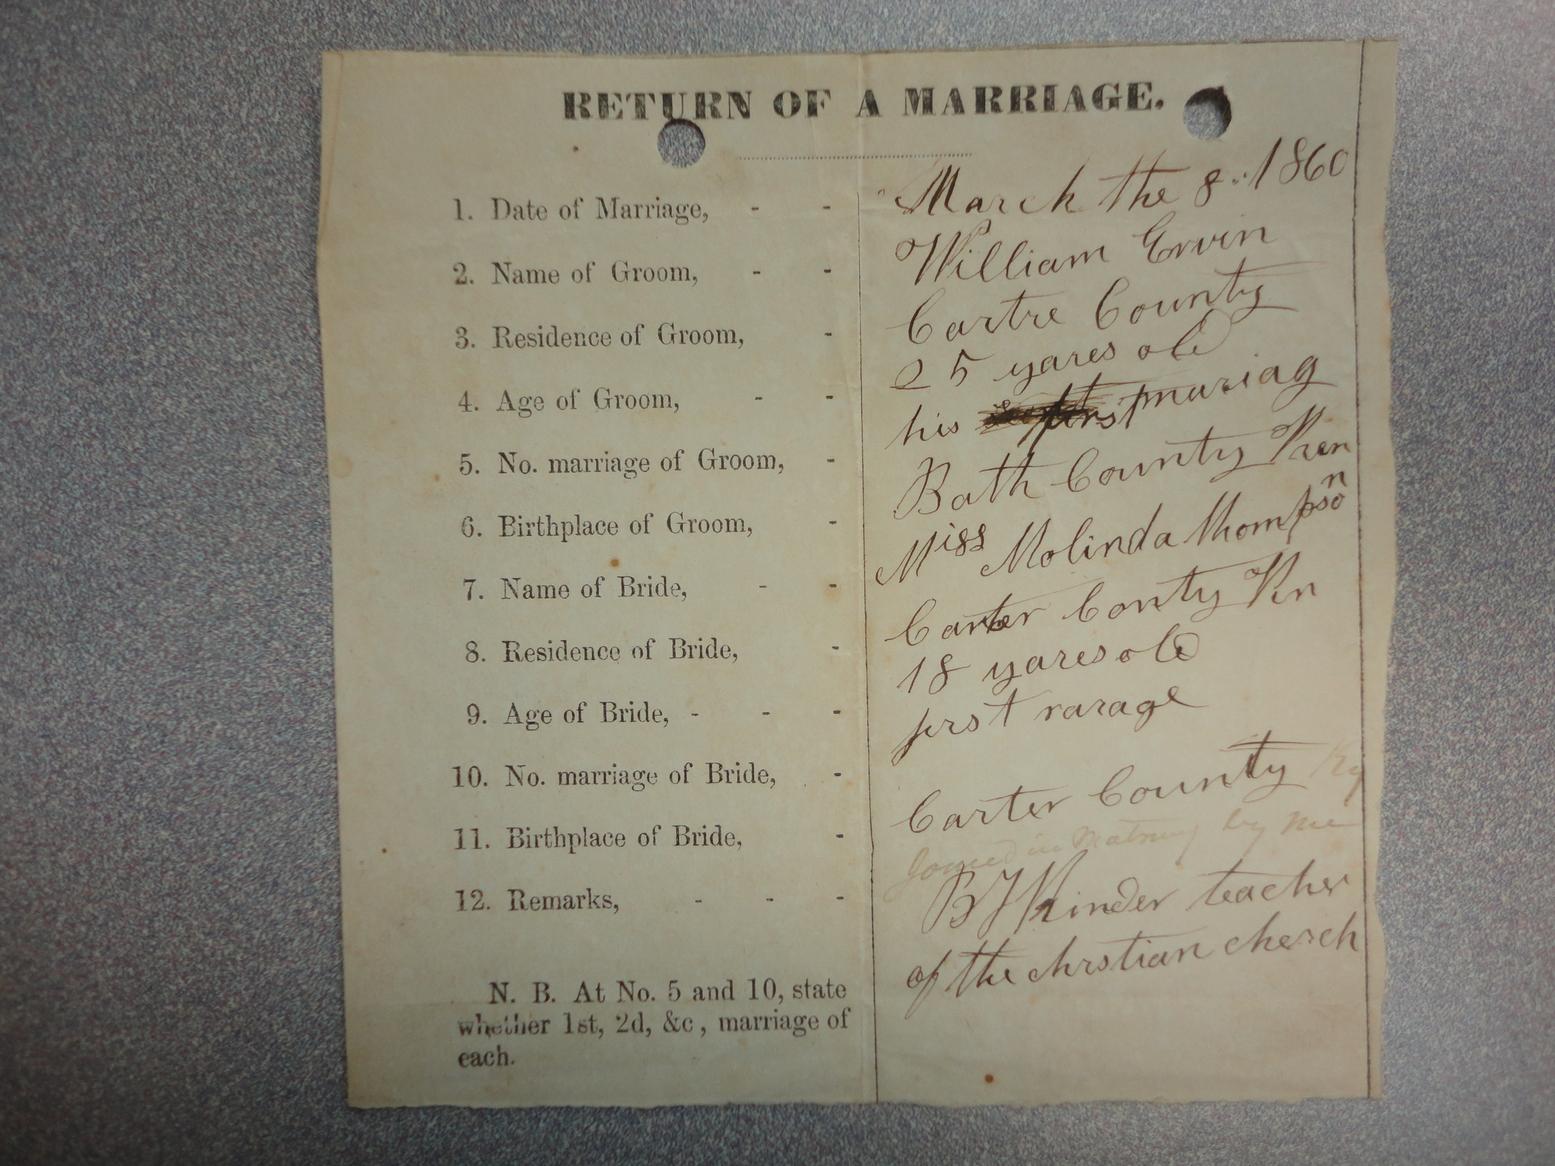 RETURN OF A MARRIAGE.
1. Date of Marriage, - - March the 8. 1860
2. Name of Groom, - - William Ervin
3. Residence of Groom, - Cartre County
4. Age of Groom, - - 25 yares old
5. No. marriage of Groom, - his first mariag
6. Birthplace of Groom, - Bath County Ken
7. Name of Bride, - - Miss Molinda Thompson
8. Residence of Bride, - Carter Conty Kn
9. Age of Bride, - - - 18 yares old
10. No. marriage of Bride, - first rarage
11. Birthplace of Bride, - Carter County Ky
Joined in Matrmy by me
12. Remarks, - - - B J Kinder teacher
of the chrstian cherch
N. B. At No. 5 and 10, state
whether 1st, 2d, &c, marriage of
each.